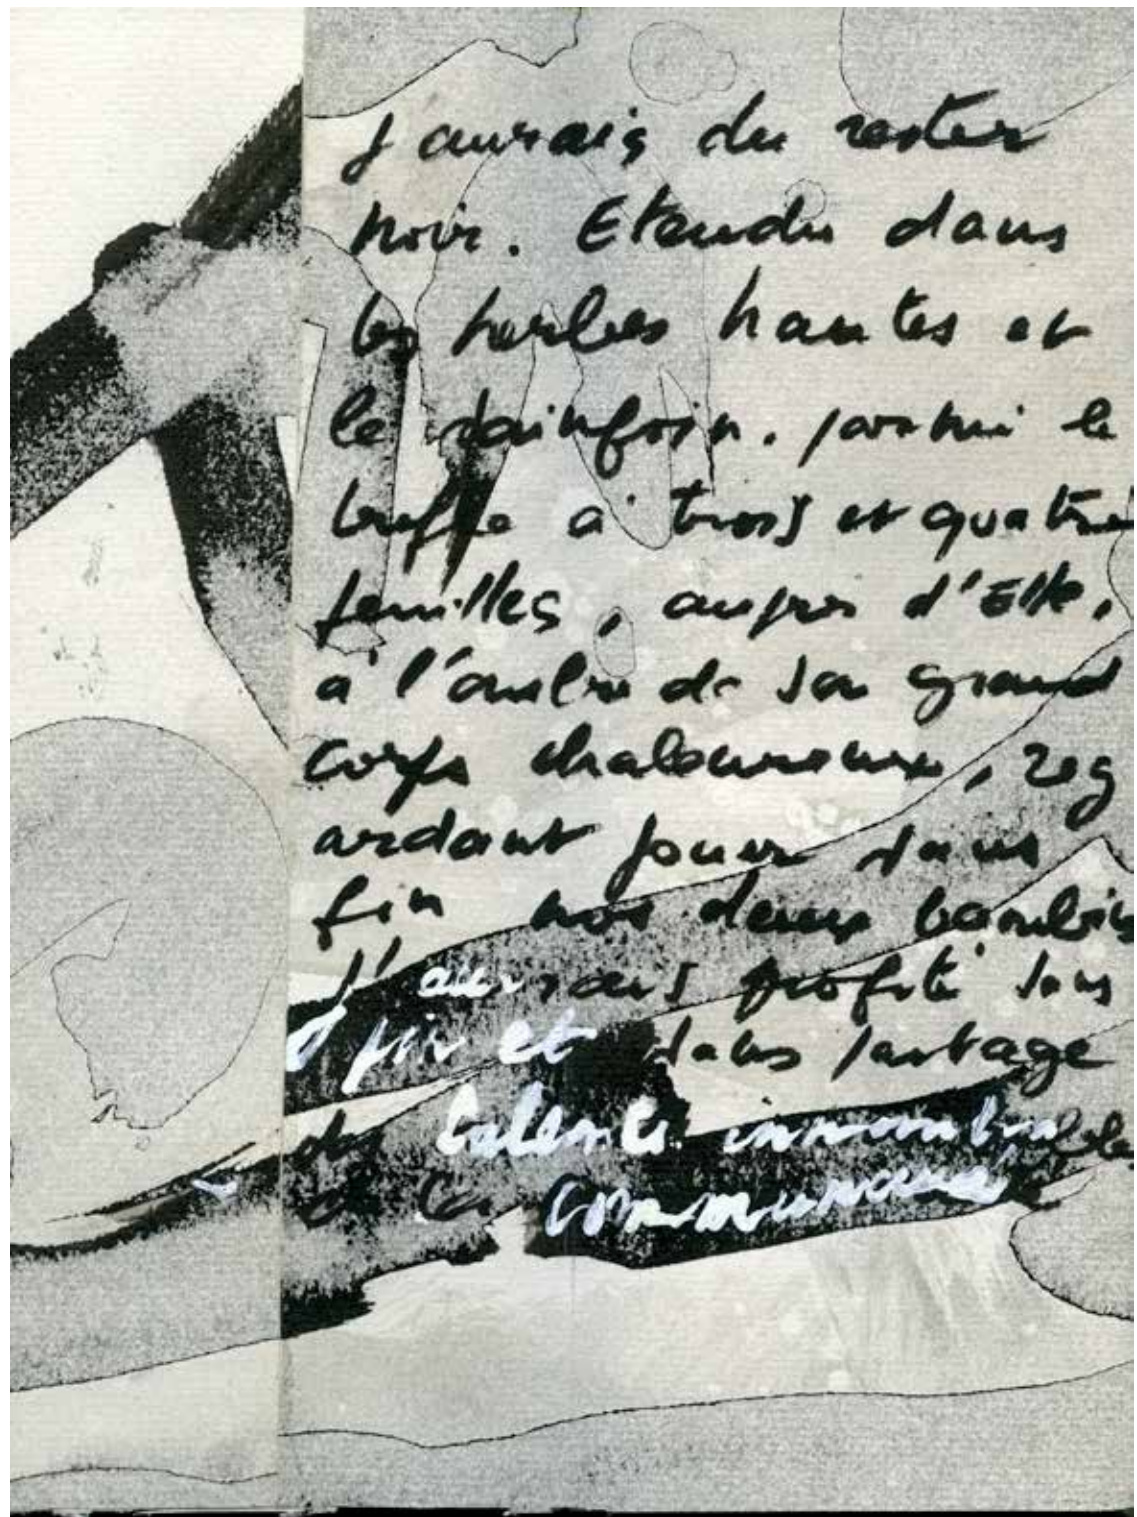 J'aurais du rester
noir. Etendu dans
les herbes hautes et
le sainfoin. parmi le
treffle à trois et quatre
feuilles, auprès d'Elle,
à l'ombre de son grand
corps chaleureux, reg
ardant jouer sans
fin nos deux bambins
J'aurais profité sans
fin et sans partage
des talents innombrables
de la communauté